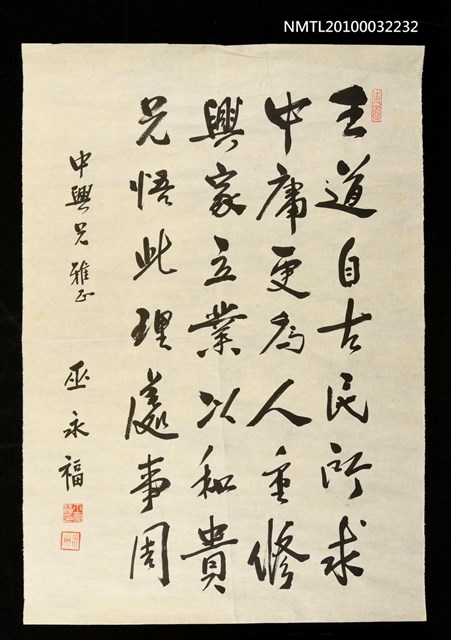 NMTL20100032232
王道自古民所求
中庸更為人重修
興家立業以和貴
兄悟此理處事周
中興兄雅正
巫永福